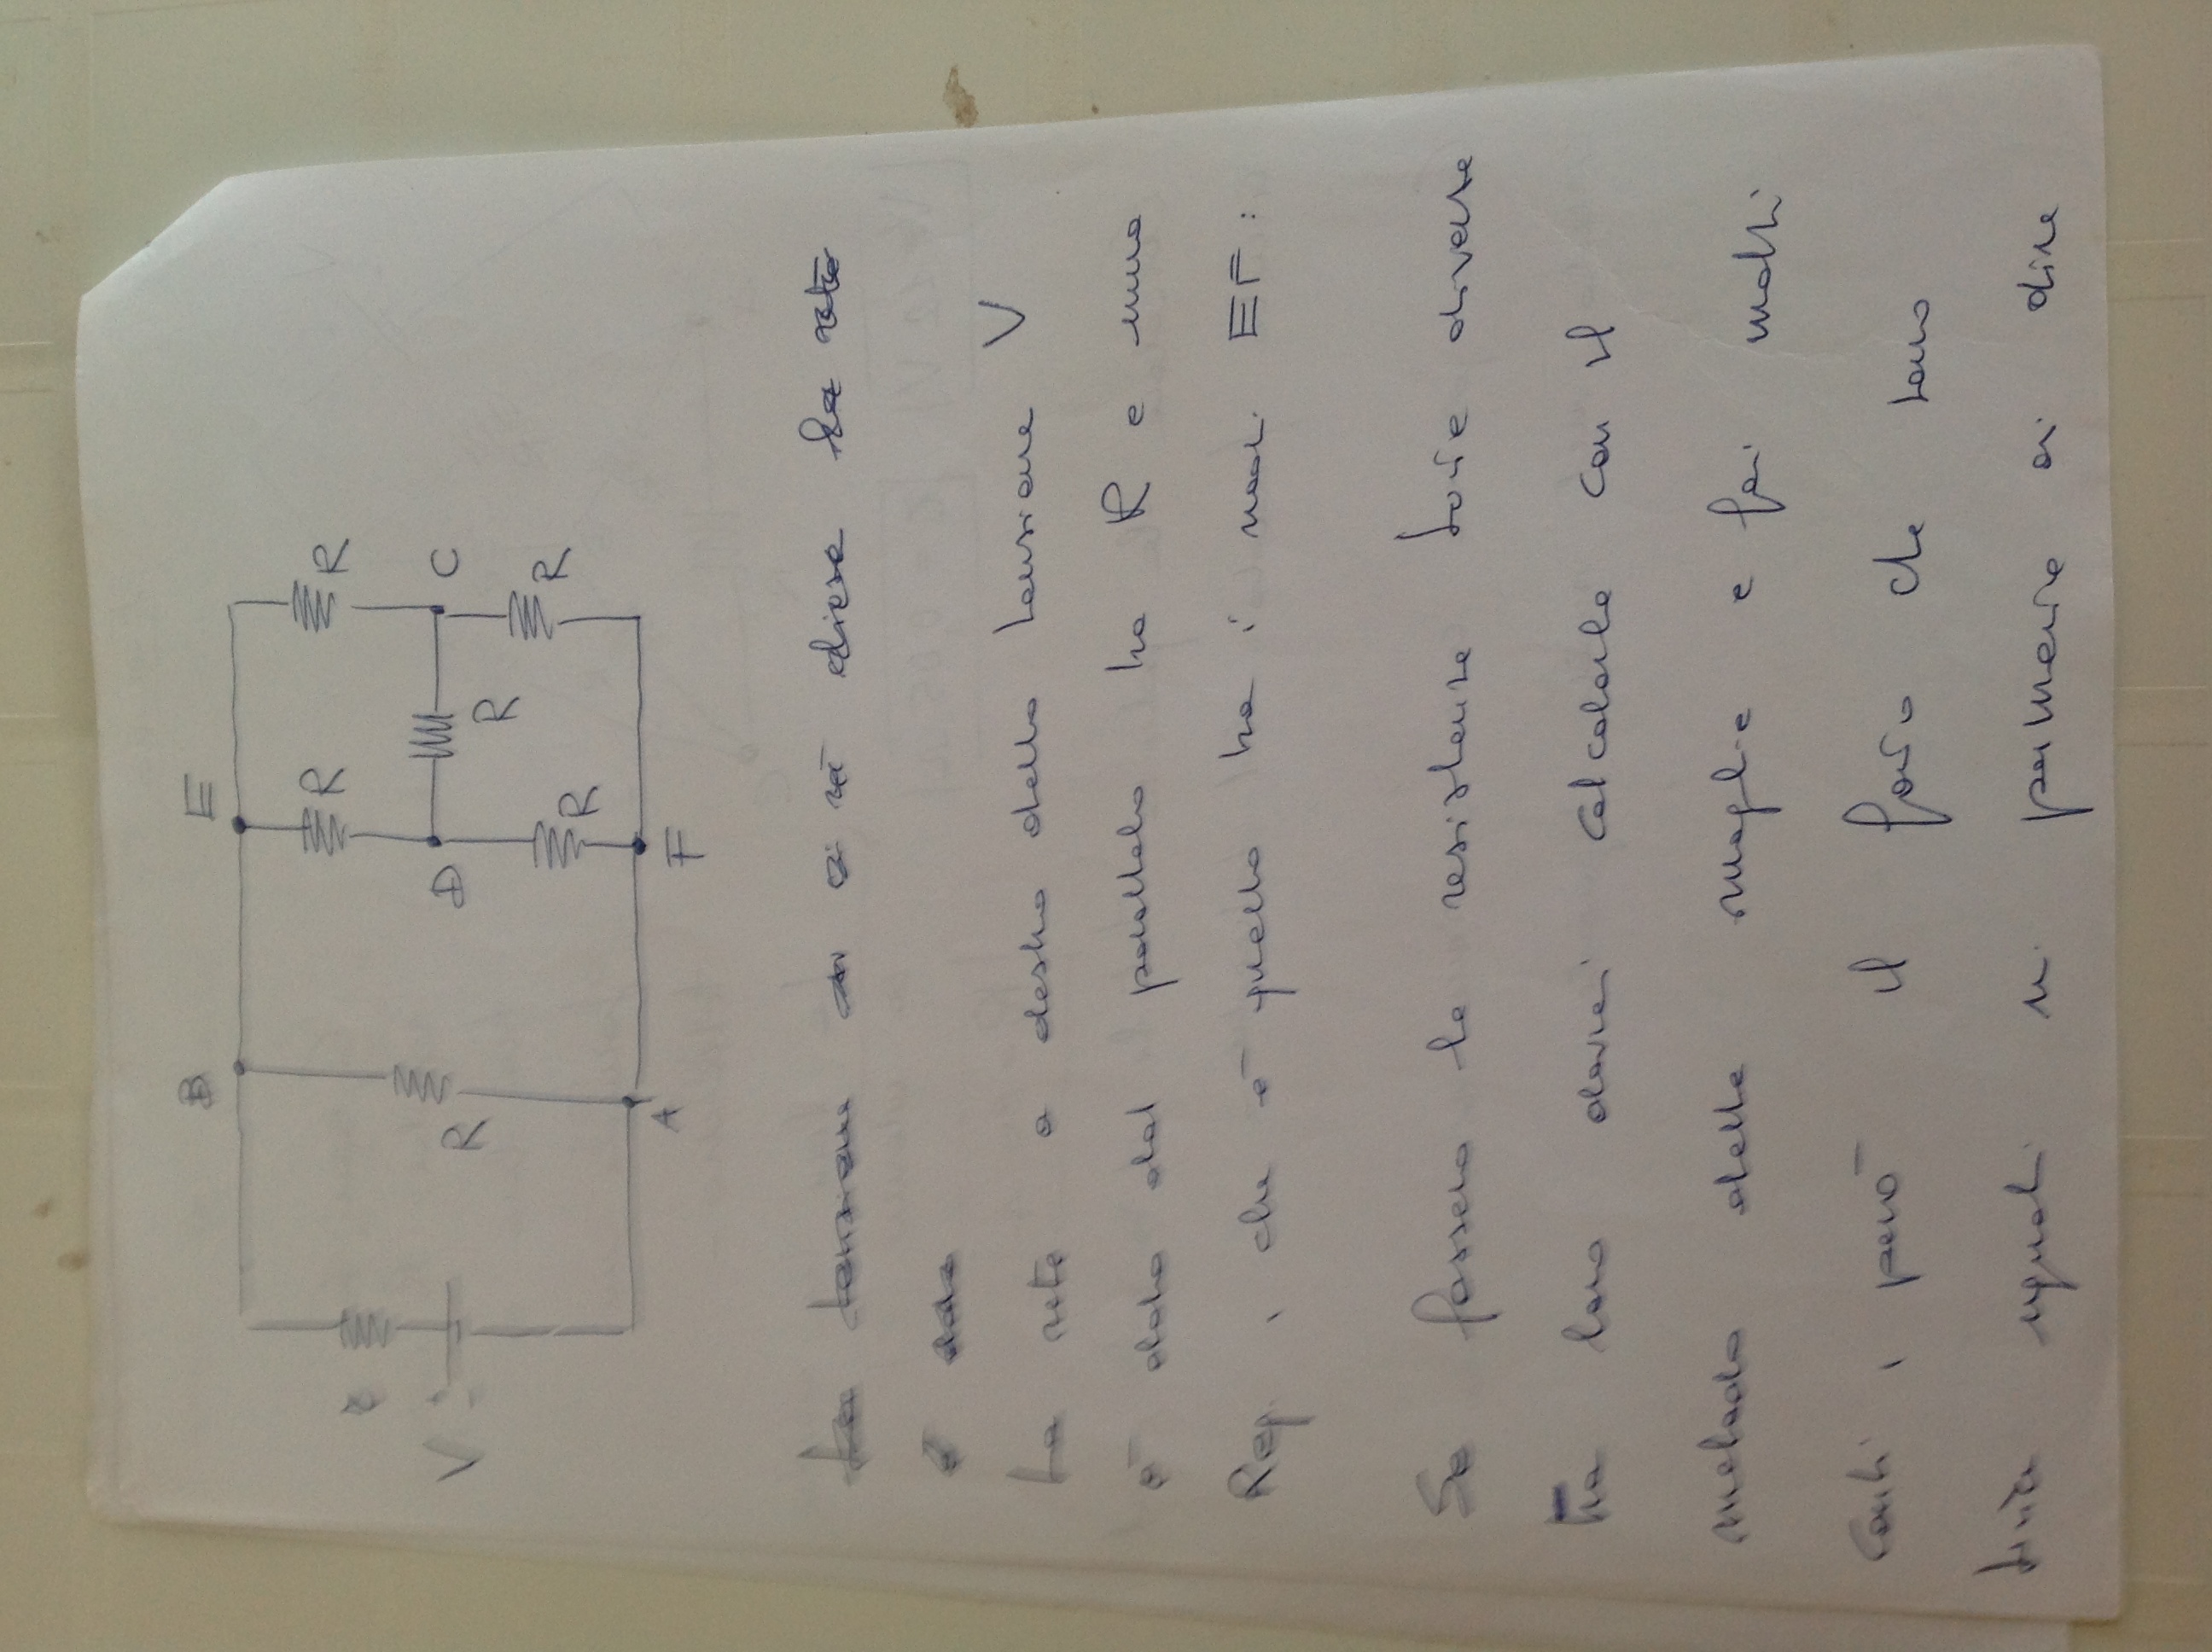 B E
R R
V R D C
R
R R
A F
La tensione
è data
La rete a destra della tensione V
è data dal parallelo tra R e una
Req. , che è quella tra i nodi EF :
Se fossero le resistenze tutte diverse
tra loro dovrei calcolarle con il
metodo delle maglie e fai molti
conti , però il fatto che sono
tutte uguali mi permette di dire